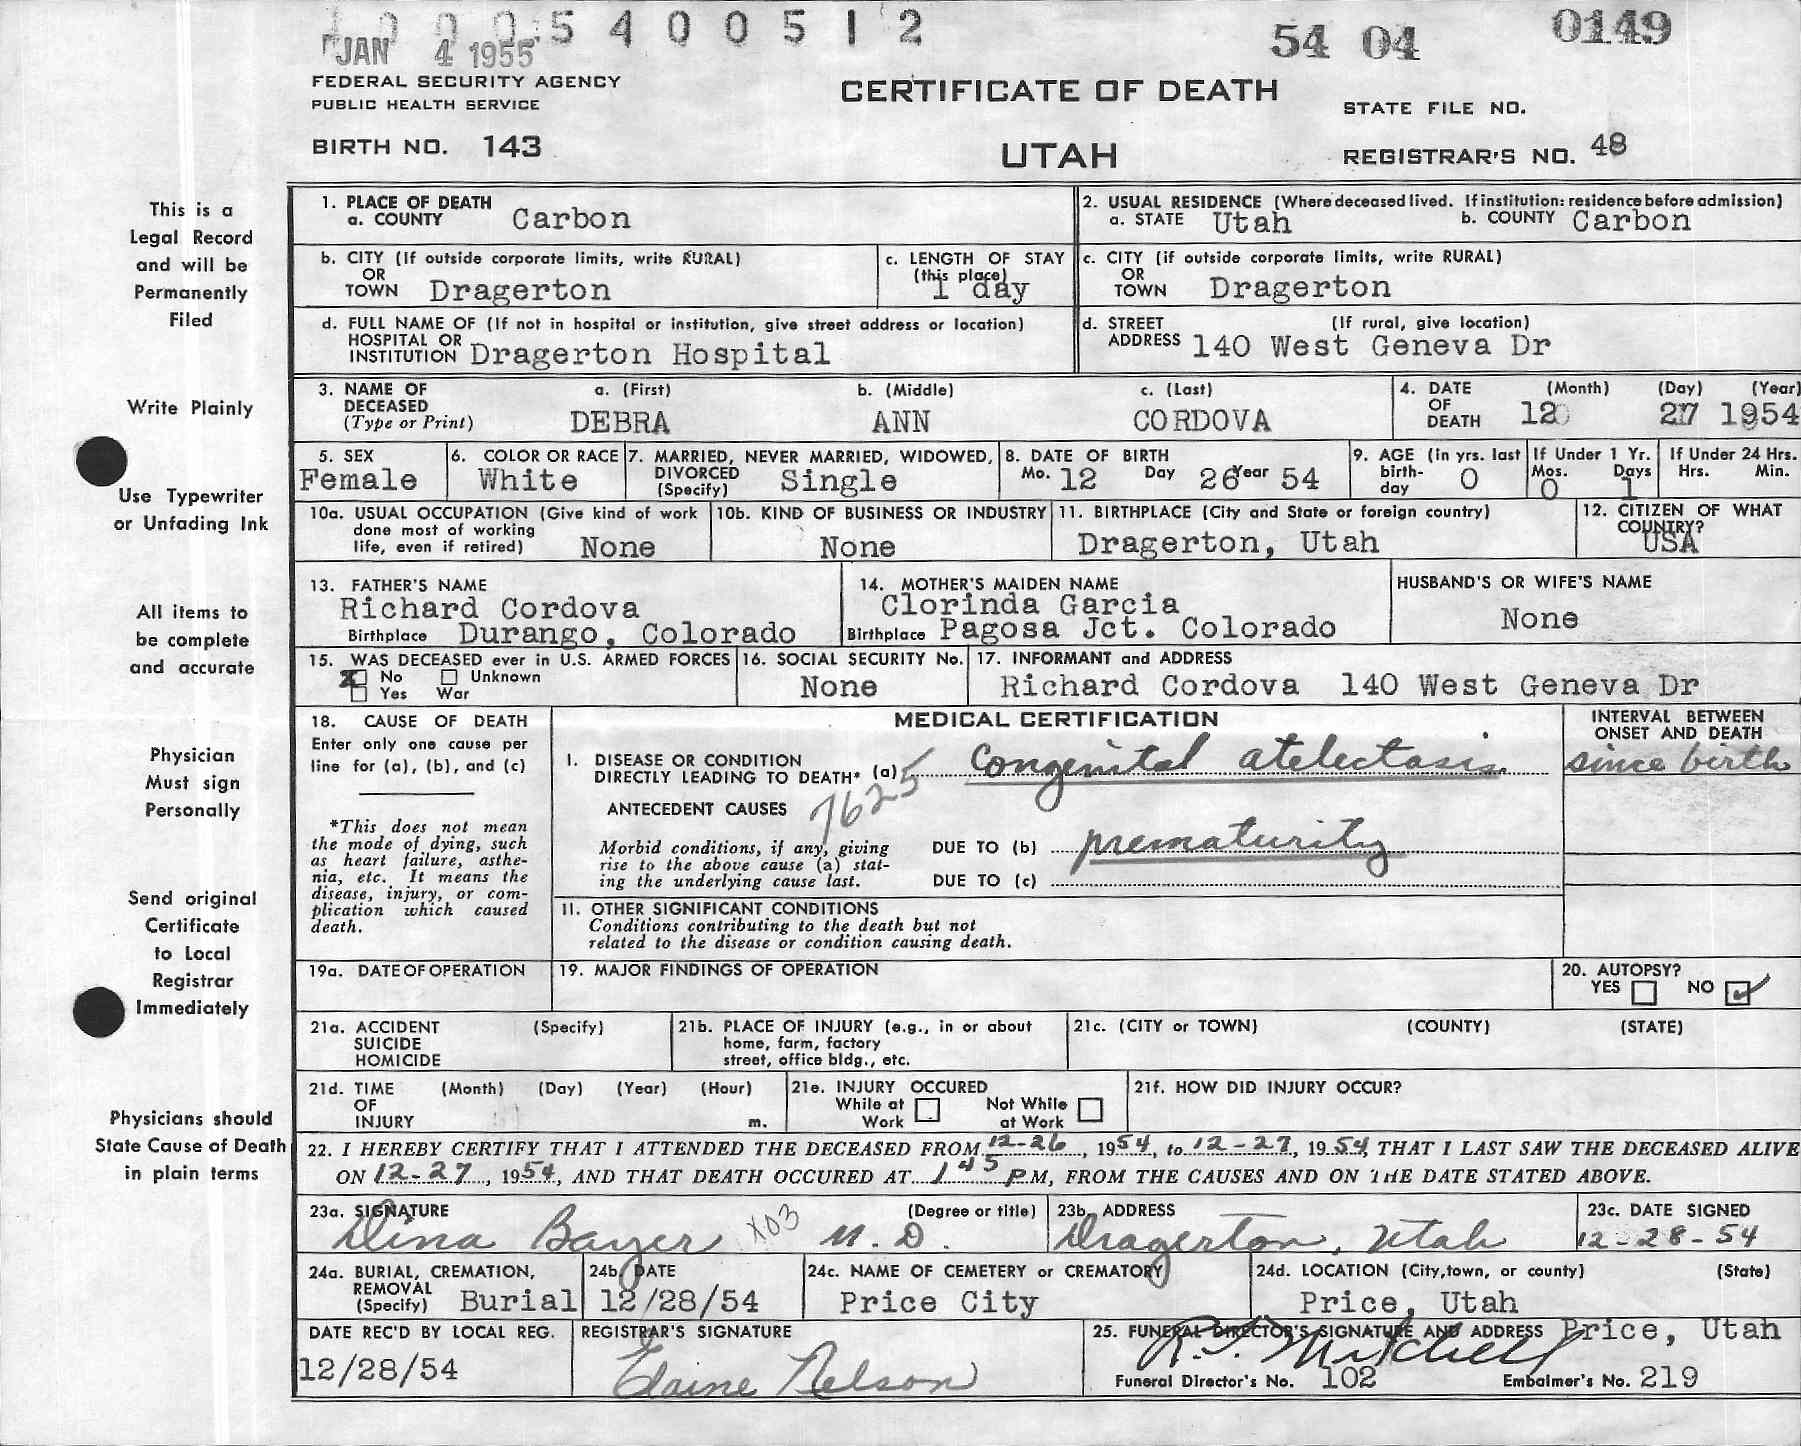 1 0 0 0 5 4 0 0 5 1 2
JAN 4 1955
54 04 0149
FEDERAL SECURITY AGENCY
PUBLIC HEALTH SERVICE
CERTIFICATE OF DEATH
STATE FILE NO.
BIRTH NO. 143
UTAH
REGISTRAR'S NO. 48
This is a
Legal Record
and will be
Permanently
Filed
Write Plainly
Use Typewriter
or Unfading Ink
All items to
be complete
and accurate
Physician
Must sign
Personally
Send original
Certificate
to Local
Registrar
Immediately
Physicians should
State Cause of Death
in plain terms
1. PLACE OF DEATH
a. COUNTY Carbon
2. USUAL RESIDENCE (Where deceased lived. If institution: residence before admission)
a. STATE Utah b. COUNTY Carbon
b. CITY (If outside corporate limits, write RURAL)
OR
TOWN Dragerton
c. LENGTH OF STAY
(this place)
1 day
c. CITY (if outside corporate limits, write RURAL)
OR
TOWN Dragerton
d. FULL NAME OF (If not in hospital or institution, give street address or location)
HOSPITAL OR
INSTITUTION Dragerton Hospital
d. STREET (If rural, give location)
ADDRESS 140 West Geneva Dr
3. NAME OF DECEASED (Type or Print)
a. (First) b. (Middle) c. (Last)
DEBRA ANN CORDOVA
4. DATE OF DEATH (Month) (Day) (Year)
12 27 1954
5. SEX
Female
6. COLOR OR RACE
White
7. MARRIED, NEVER MARRIED, WIDOWED,
DIVORCED
(Specify) Single
8. DATE OF BIRTH
Mo. 12 Day 26 Year 54
9. AGE (In yrs. last
birth-
day 0
If Under 1 Yr.
Mos. Days
0 1
If Under 24 Hrs.
Hrs. Min.
10a. USUAL OCCUPATION (Give kind of work
done most of working
life, even if retired) None
10b. KIND OF BUSINESS OR INDUSTRY
None
11. BIRTHPLACE (City and State or foreign country)
Dragerton, Utah
12. CITIZEN OF WHAT
COUNTRY?
USA
13. FATHER'S NAME
Richard Cordova
Birthplace Durango, Colorado
14. MOTHER'S MAIDEN NAME
Clorinda Garcia
Birthplace Pagosa Jct. Colorado
HUSBAND'S OR WIFE'S NAME
None
15. WAS DECEASED ever in U.S. ARMED FORCES
X No Unknown
Yes War
16. SOCIAL SECURITY No.
None
17. INFORMANT and ADDRESS
Richard Cordova 140 West Geneva Dr
18. CAUSE OF DEATH
Enter only one cause per
line for (a), (b), and (c)
*This does not mean
the mode of dying, such
as heart failure, asthe-
nia, etc. It means the
disease, injury, or com-
plication which caused
death.
MEDICAL CERTIFICATION
INTERVAL BETWEEN
ONSET AND DEATH
I. DISEASE OR CONDITION
DIRECTLY LEADING TO DEATH* (a) Congenital atelectasis since birth
7625
ANTECEDENT CAUSES
Morbid conditions, if any, giving
rise to the above cause (a) stat-
ing the underlying cause last.
DUE TO (b) prematurity
DUE TO (c)
II. OTHER SIGNIFICANT CONDITIONS
Conditions contributing to the death but not
related to the disease or condition causing death.
19a. DATE OF OPERATION
19. MAJOR FINDINGS OF OPERATION
20. AUTOPSY?
YES NO ✓
21a. ACCIDENT (Specify)
SUICIDE
HOMICIDE
21b. PLACE OF INJURY (e.g., in or about
home, farm, factory
street, office bldg., etc.
21c. (CITY or TOWN) (COUNTY) (STATE)
21d. TIME (Month) (Day) (Year) (Hour)
OF
INJURY m.
21e. INJURY OCCURED
While at Work Not While at Work
21f. HOW DID INJURY OCCUR?
22. I HEREBY CERTIFY THAT I ATTENDED THE DECEASED FROM 12-26, 1954, to 12-27, 1954, THAT I LAST SAW THE DECEASED ALIVE
ON 12-27, 1954, AND THAT DEATH OCCURED AT 1 45 P M, FROM THE CAUSES AND ON THE DATE STATED ABOVE.
23a. SIGNATURE (Degree or title)
Dina Bayer X03 M.D.
23b. ADDRESS
Dragerton, Utah
23c. DATE SIGNED
12-28-54
24a. BURIAL, CREMATION,
REMOVAL
(Specify) Burial
24b. DATE
12/28/54
24c. NAME OF CEMETERY or CREMATORY
Price City
24d. LOCATION (City, town, or county) (State)
Price, Utah
DATE REC'D BY LOCAL REG.
12/28/54
REGISTRAR'S SIGNATURE
Elaine Nelson
25. FUNERAL DIRECTOR'S SIGNATURE AND ADDRESS Price, Utah
R. T. Mitchell
Funeral Director's No. 102 Embalmer's No. 219